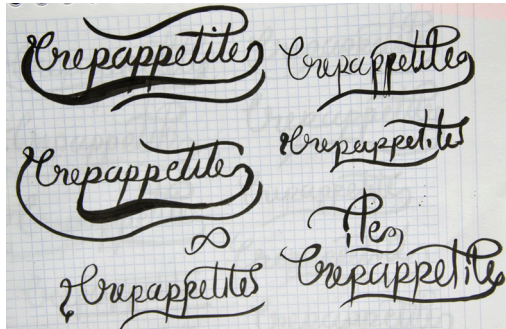 Crepappetites
Crepappetites
Crepappetites
Crepappetites
ites
Crepappetites
Crepappetites